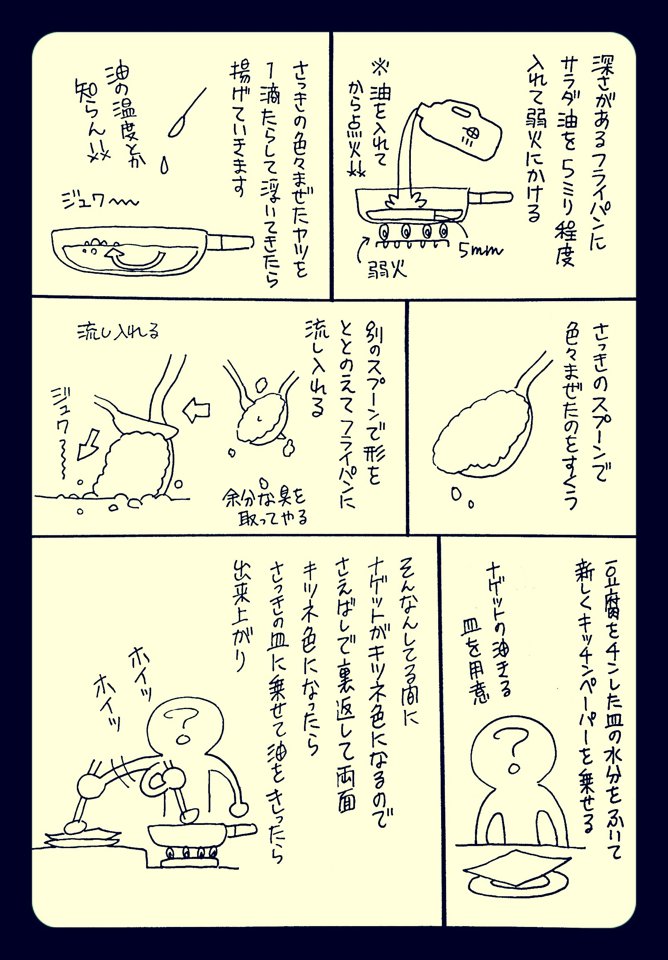 深さがあるフライパンに
サラダ油を5ミリ程度
入れて弱火にかける
※油を入れて
から点火!!
5mm
弱火
さっきの色々まぜたヤツを
1滴たらして浮いてきたら
揚げていきます
油の温度とか
知らん!!
ジュワ〜
さっきのスプーンで
色々まぜたのをすくう
別のスプーンで形を
ととのえてフライパンに
流し入れる
余分な具を
取ってやる
流し入れる
ジュワ〜
豆腐をチンした皿の水分をふいて
新しくキッチンペーパーを乗せる
ナゲットの油きる
皿を用意
そんなんしてる間に
ナゲットがキツネ色になるので
さえばしで裏返して両面
キツネ色になったら
さっきの皿に乗せて油をきったら
出来上がり
ホイッ
ホイッ